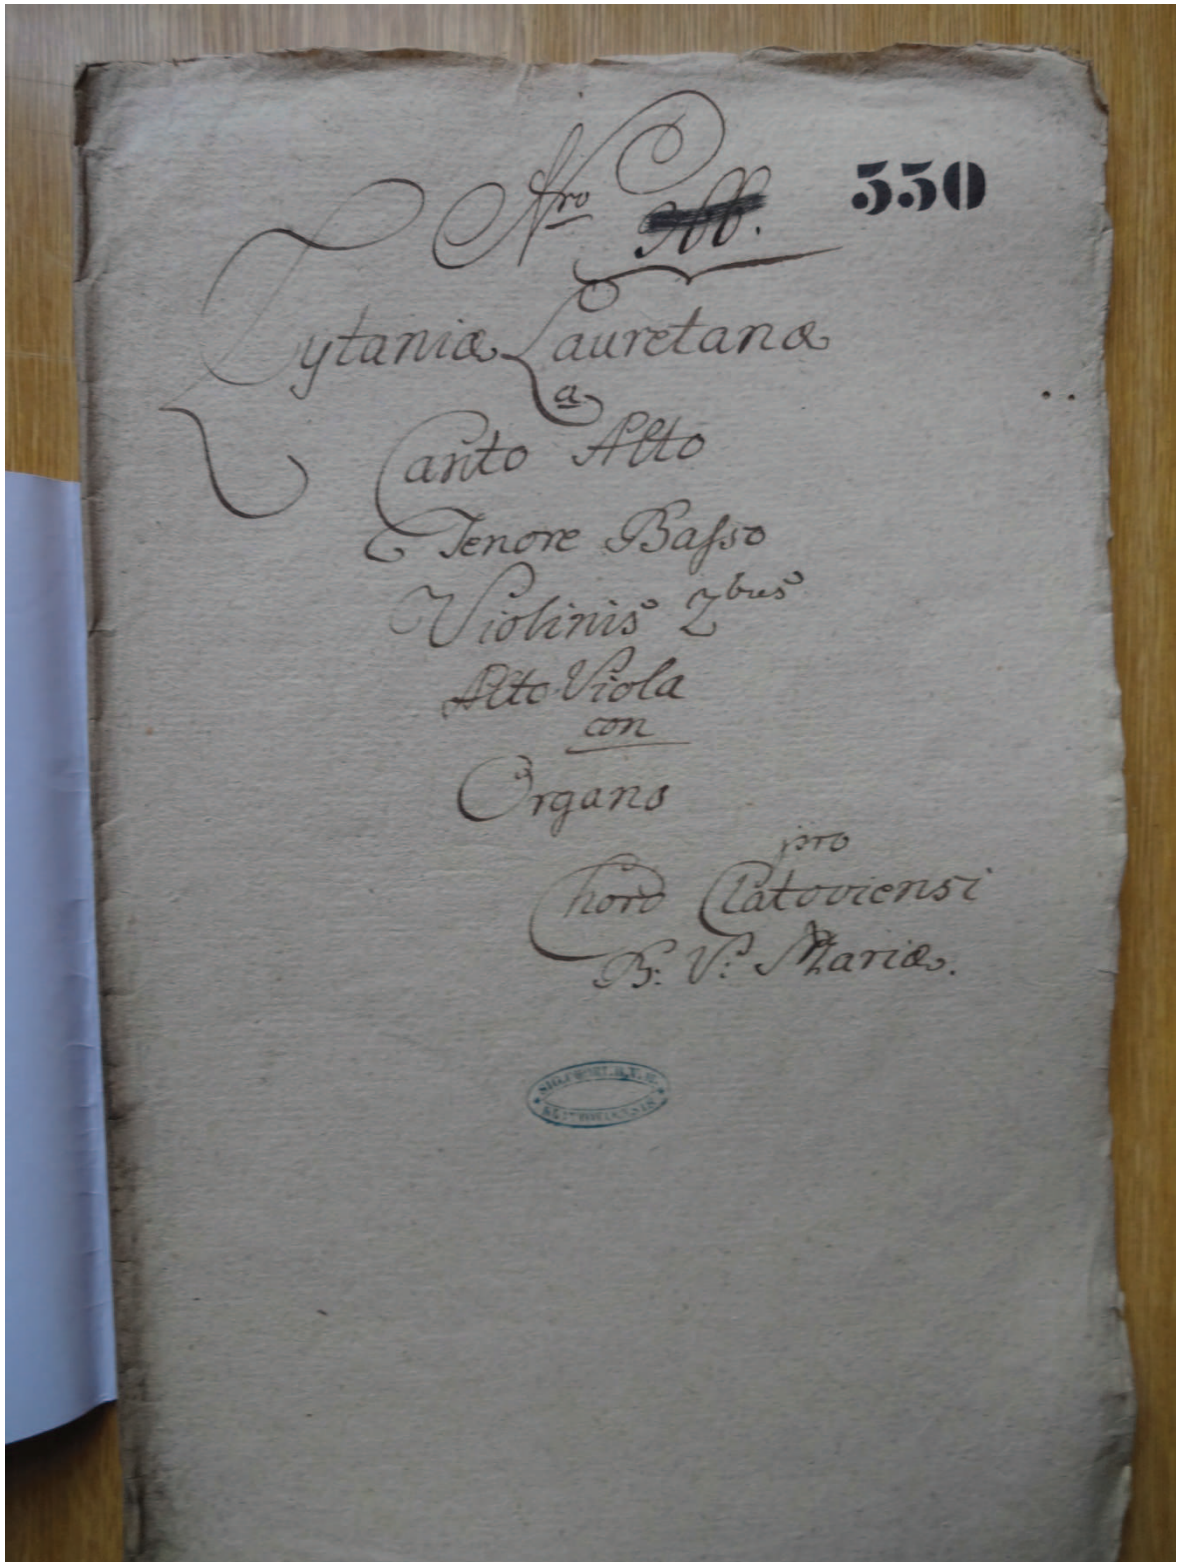 Nro 330
Lytaniæ Lauretanæ
a
Canto Alto
Tenore Basso
Violinis 2bus
Alto Viola
con
Organo
pro
Choro Clatoviensi
B: V: Mariæ.